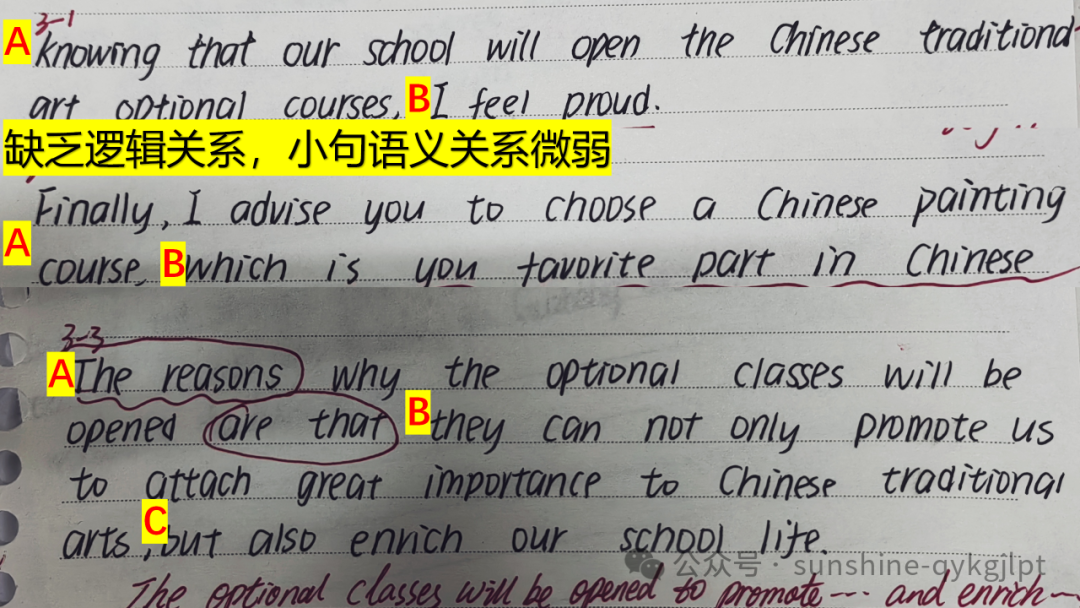 3-1
A knowing that our school will open the Chinese traditional
art optional courses, B I feel proud.
缺乏逻辑关系，小句语义关系微弱
Finally, I advise you to choose a Chinese painting
A course, B which is you favorite part in Chinese
3-3
A The reasons why the optional classes will be
opened are that B they can not only promote us
to attach great importance to Chinese traditional
arts C , but also enrich our school life.
公众号 · sunshine-qykgjlpt
The optional classes will be opened to promote --- and enrich ~